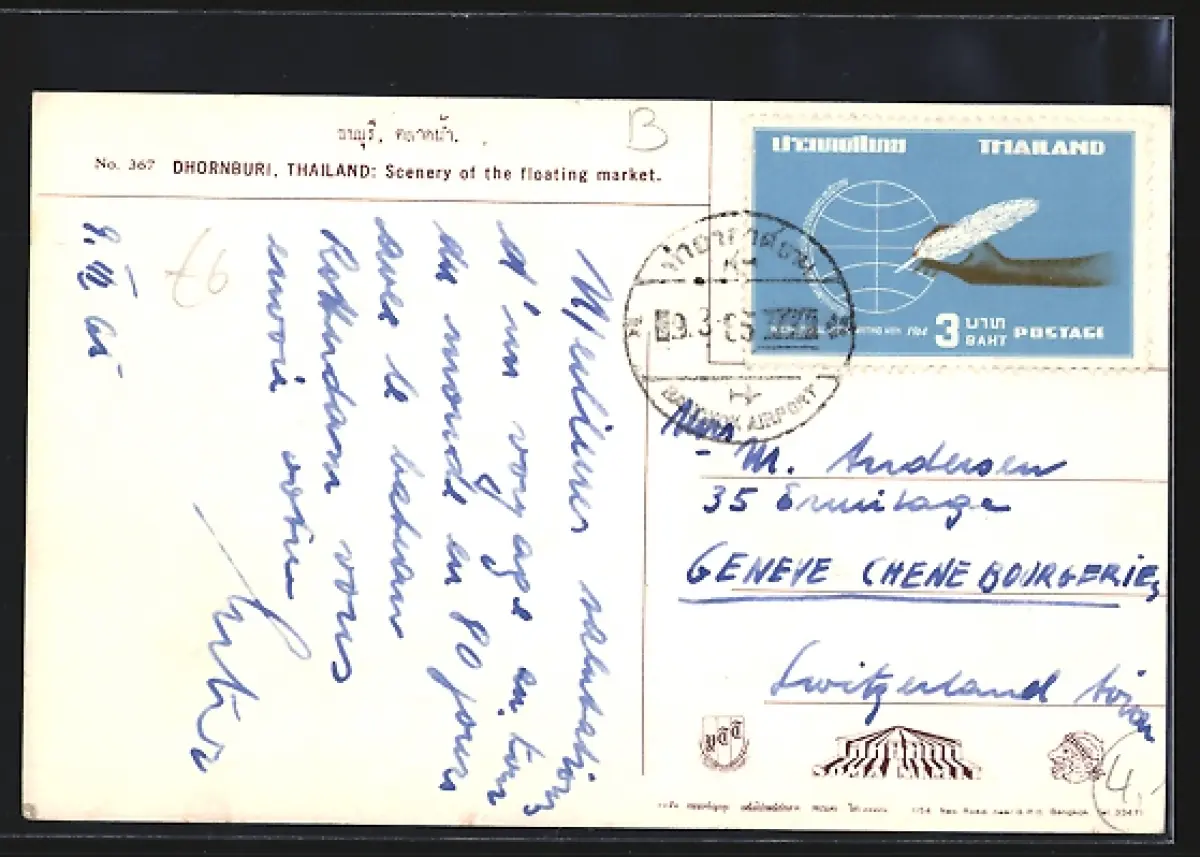 ธนบุรี, ตลาดน้ำ.
B
No. 367 DHORNBURI, THAILAND: Scenery of the floating market.
ประเทศไทย THAILAND
3 บาท BAHT POSTAGE
ท่าอากาศยาน
9.3
BANGKOK AIRPORT
Meilleures salutations
d'un voyage au tour
du monde en 80 jours
avec le bateau
Rotterdam vous
envoie votre
76
M. Andersen
35 Ermitage
GENEVE CHENE BOURGERIES
Switzerland
4.
Bangkok